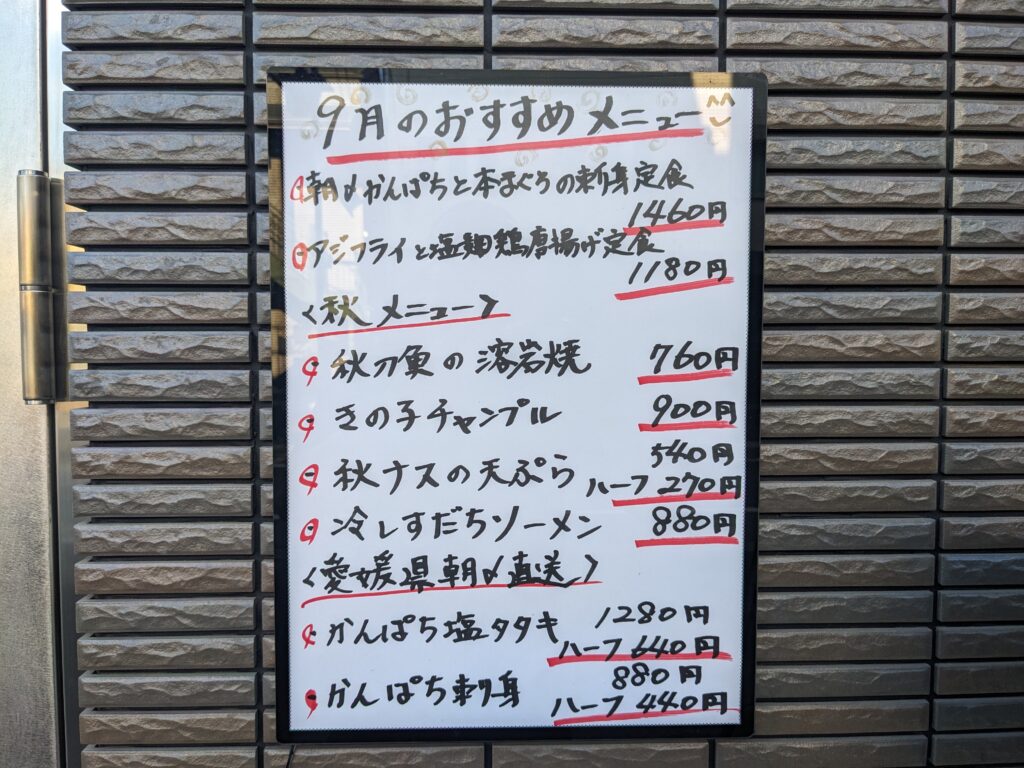 9月のおすすめメニュー
朝〆かんぱちと本まぐろの刺身定食
1460円
アジフライと塩麹鶏唐揚げ定食
1180円
<秋メニュー>
秋刀魚の溶岩焼 760円
きの子チャンプル 900円
540円
秋ナスの天ぷら ハーフ 270円
冷しすだちソーメン 880円
<愛媛県朝〆直送>
かんぱち塩タタキ 1280円
ハーフ 640円
880円
かんぱち刺身 ハーフ 440円